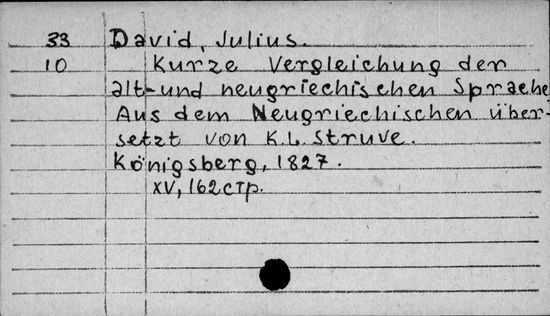 33 David, Julius.
10 Kurze Vergleichung der
alt- und neugriechischen Sprache
Aus dem Neugriechischen über-
setzt von K.L. Struve.
Königsberg, 1827.
XV, 162 стр.